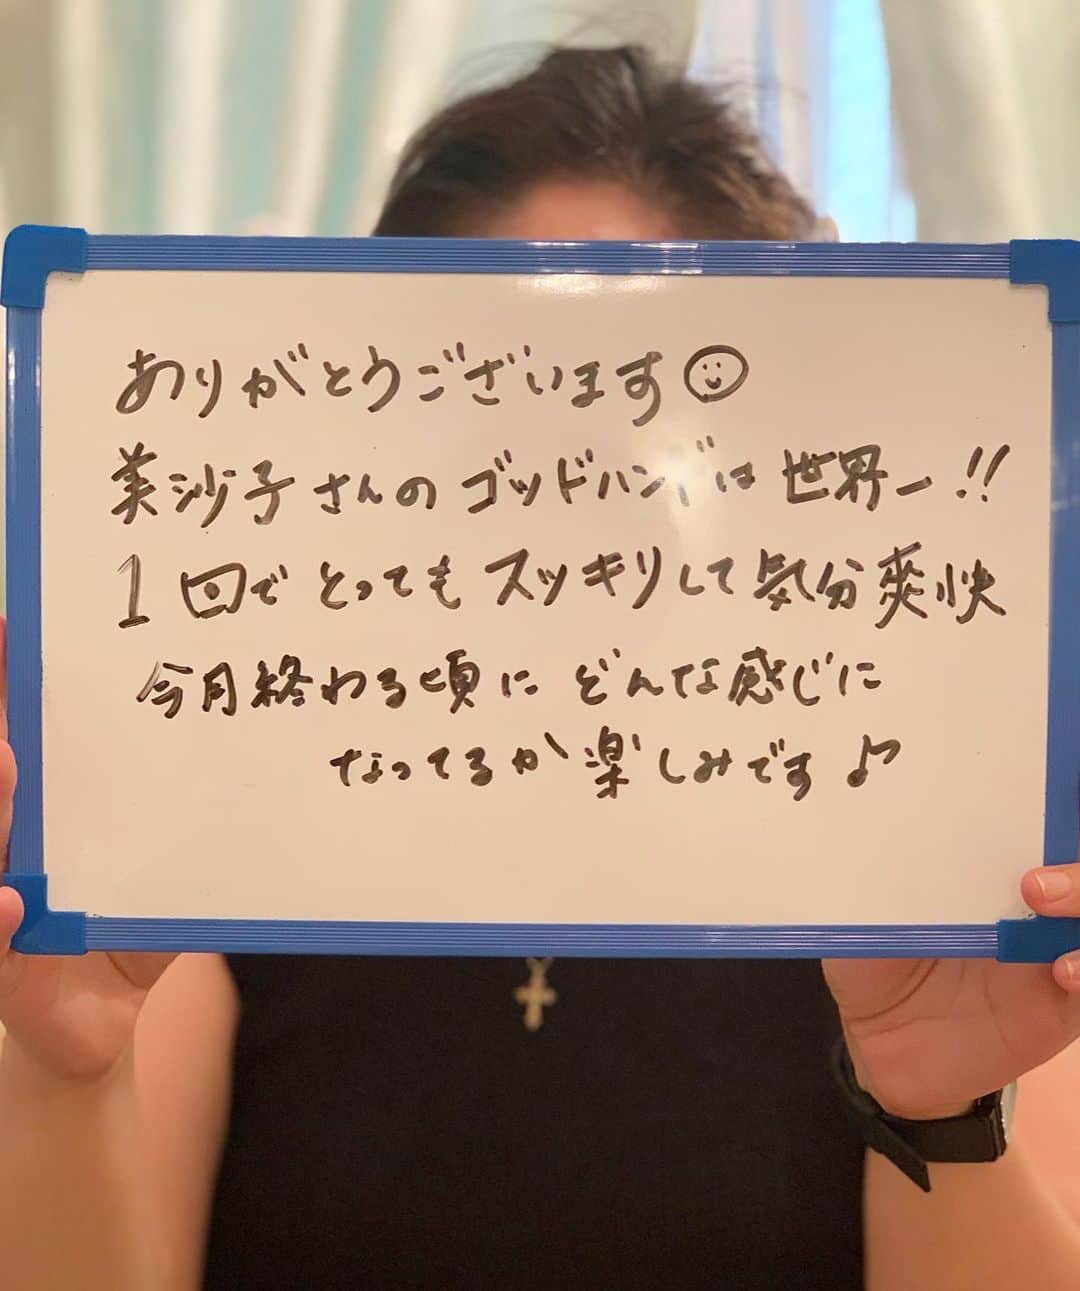 ありがとうございます☺
美沙子さんのゴッドハンドは世界一!!
1回でとってもスッキリして気分爽快
今月終わる頃にどんな感じに
なってるか楽しみです♪